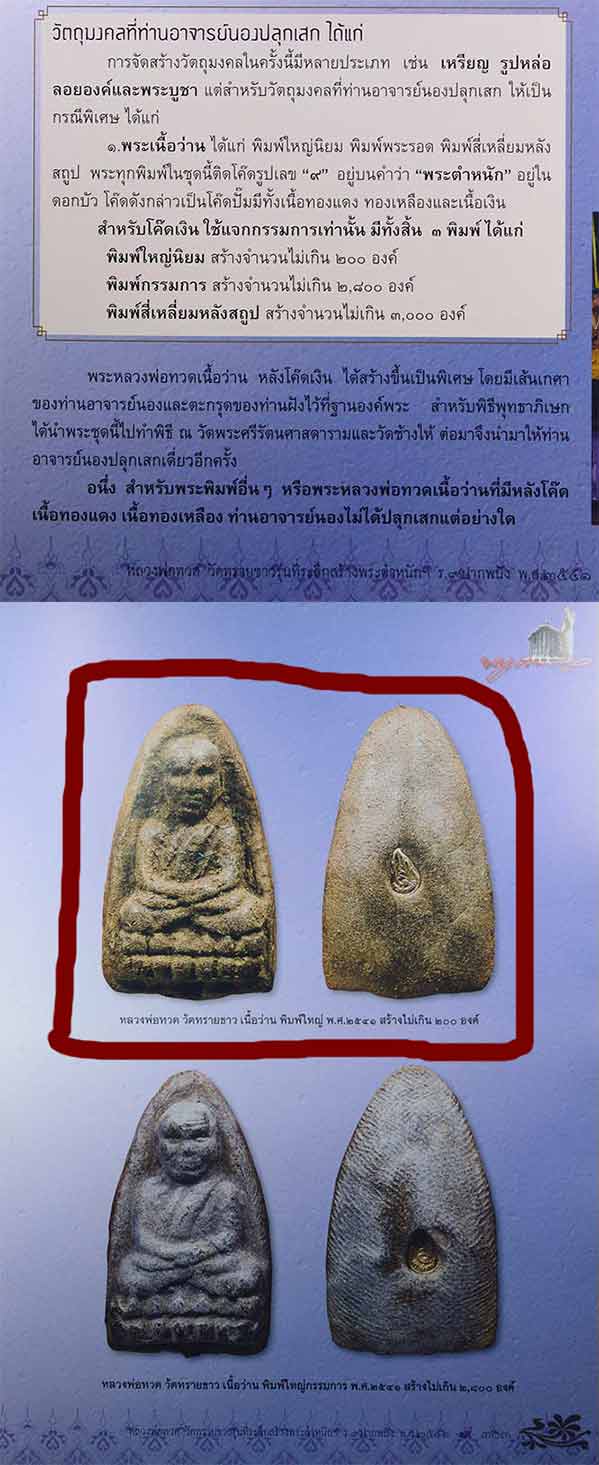 วัตถุมงคลที่ท่านอาจารย์นองปลุกเสก ได้แก่
การจัดสร้างวัตถุมงคลในครั้งนี้มีหลายประเภท เช่น เหรียญ รูปหล่อ
ลอยองค์และพระบูชา แต่สำหรับวัตถุมงคลที่ท่านอาจารย์นองปลุกเสก ให้เป็น
กรณีพิเศษ ได้แก่
๑.พระเนื้อว่าน ได้แก่ พิมพ์ใหญ่นิยม พิมพ์พระรอด พิมพ์สี่เหลี่ยมหลัง
สถูป พระทุกพิมพ์ในชุดนี้ติดโค๊ดรูปเลข “๙” อยู่บนคำว่า “พระตำหนัก” อยู่ใน
ดอกบัว โค๊ดดังกล่าวเป็นโค๊ดปั๊มมีทั้งเนื้อทองแดง ทองเหลืองและเนื้อเงิน
สำหรับโค๊ดเงิน ใช้แจกกรรมการเท่านั้น มีทั้งสิ้น ๓ พิมพ์ ได้แก่
พิมพ์ใหญ่นิยม สร้างจำนวนไม่เกิน ๒๐๐ องค์
พิมพ์กรรมการ สร้างจำนวนไม่เกิน ๒,๘๐๐ องค์
พิมพ์สี่เหลี่ยมหลังสถูป สร้างจำนวนไม่เกิน ๓,๐๐๐ องค์
พระหลวงพ่อทวดเนื้อว่าน หลังโค๊ดเงิน ได้สร้างขึ้นเป็นพิเศษ โดยมีเส้นเกศา
ของท่านอาจารย์นองและตะกรุดของท่านฝังไว้ที่ฐานองค์พระ สำหรับพิธีพุทธาภิเษก
ได้นำพระชุดนี้ไปทำพิธี ณ วัดพระศรีรัตนศาสดารามและวัดช้างให้ ต่อมาจึงนำมาให้ท่าน
อาจารย์นองปลุกเสกเดี่ยวอีกครั้ง
อนึ่ง สำหรับพระพิมพ์อื่น ๆ หรือพระหลวงพ่อทวดเนื้อว่านที่มีหลังโค๊ด
เนื้อทองแดง เนื้อทองเหลือง ท่านอาจารย์นองไม่ได้ปลุกเสกแต่อย่างใด
หลวงพ่อทวด วัดทรายขาวรุ่นที่ระลึกสร้างพระตำหนักฯ ร.๙ ปากพนัง พ.ศ.๒๕๔๑
หลวงพ่อทวด วัดทรายขาว เนื้อว่าน พิมพ์ใหญ่ พ.ศ.๒๕๔๑ สร้างไม่เกิน ๒๐๐ องค์
หลวงพ่อทวด วัดทรายขาว เนื้อว่าน พิมพ์ใหญ่กรรมการ พ.ศ.๒๕๔๑ สร้างไม่เกิน ๒,๘๐๐ องค์
หลวงพ่อทวด วัดทรายขาวรุ่นที่ระลึกสร้างพระตำหนักฯ ร.๙ ปากพนัง พ.ศ.๒๕๔๑